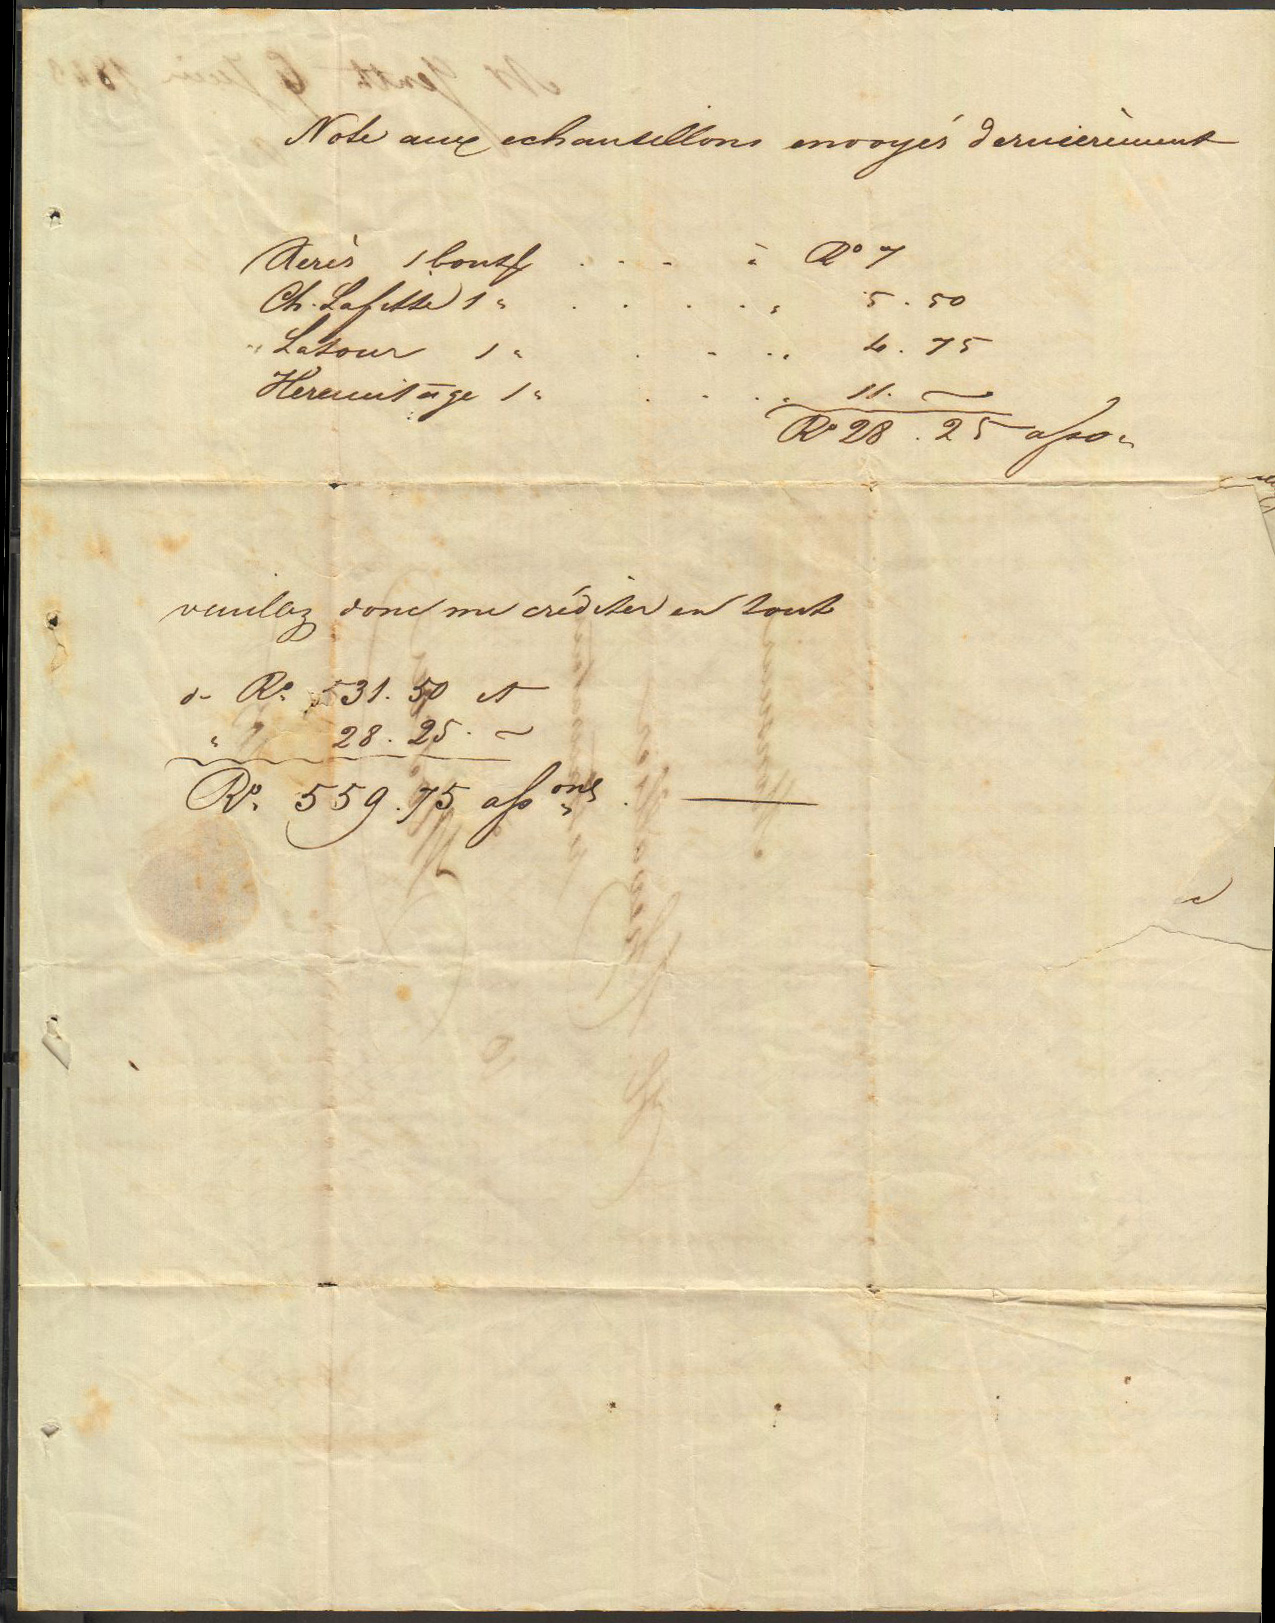 Note aux echantillons envoyés dernièrement
Xerès 1 boutlle . . . . à Ro 7
Ch. Lafitte 1 " . . . . " 5. 50
" Latour 1 " . . . " 4. 75
Hermitage 1 " . . . " 11. ~
Ro 28. 25 asso"
veuilez donc me créditer en tout
d- Ro. 531. 50 et
" 28. 25. ~
Ro. 559. 75 assons . —